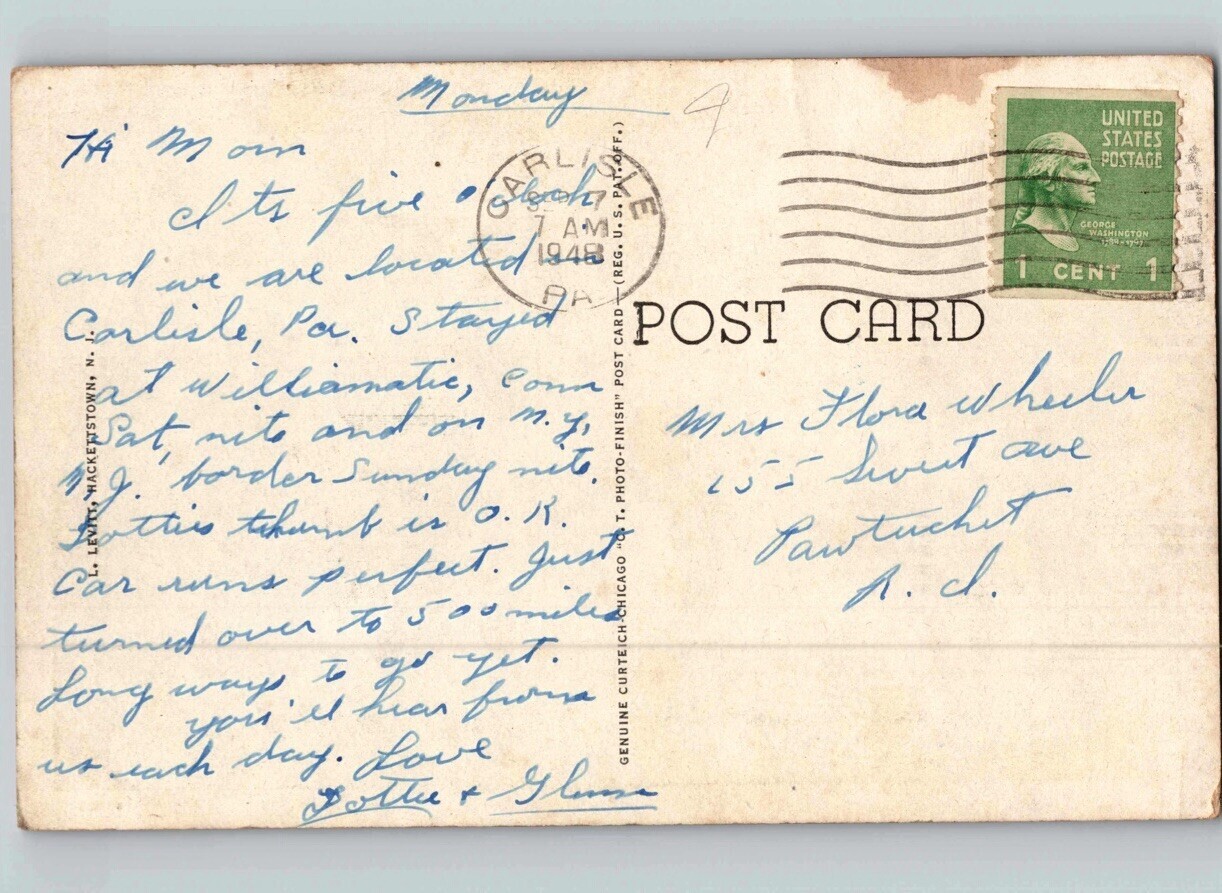 Monday
Hi Mom
Its five o clock
and we are located in
Carlisle, Pa. Stayed
at Williamatic, Conn
Sat, nite and on N.Y,
N.J. border Sunday nite.
Dotties thumb is O.K.
Car runs perfect. Just
turned over to 500 miles
Long ways to go yet.
you'll hear from
us each day. Love
Dottie + Glenn
L. LEVITT, HACKETTSTOWN, N. J.
CARLISLE
SEP 7
7 AM
1948
PA
GENUINE CURTEICH-CHICAGO "C. T. PHOTO-FINISH" POST CARD—(REG. U. S. PAT. OFF.)
UNITED
STATES
POSTAGE
GEORGE
WASHINGTON
1789-1797
1 CENT 1
POST CARD
Mrs Flora Wheeler
155 Sweet ave
Pawtucket
R. I.